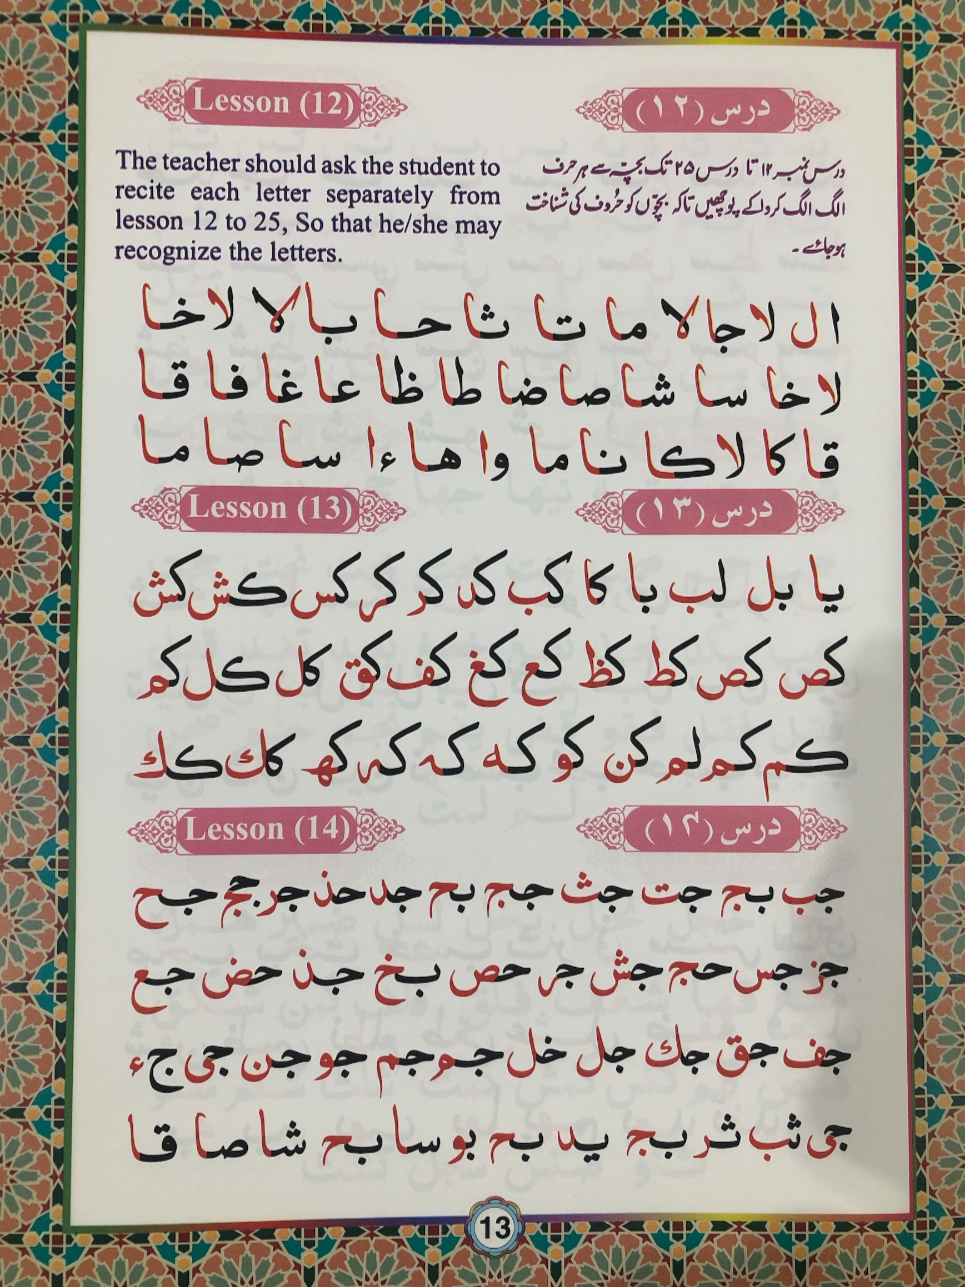 Lesson (12)
درس (۱۲)
The teacher should ask the student to
recite each letter separately from
lesson 12 to 25, So that he/she may
recognize the letters.
درس نمبر ۱۲ تا درس ۲۵ تک بچّہ سے ہر حرف
الگ الگ کروا کے پوچھیں تاکہ بچّوں کو حُروف کی شناخت
ہوجائے۔
ا ل لا جا لا ما تا ثا حا با لا لا خا
لا خا سا شا صا ضا طا ظا عا غا فا قا
قا كا لا كا نا ما وا ها ءا سا صا ما
Lesson (13)
درس (۱۳)
يا بل لب با كا كب كد كر كر كس كش كش
كص كص كط كظ كع كغ كف كق كل كل كم
كم كم لم كن كو كه كہ كہ كھ كك كك
Lesson (14)
درس (۱۴)
جب بج جت جث جج بح جد حذ جر حجج جح
جز جس حج جش جر حص بخ جذ حض جع
جف جق جك جل خل جم جم جو جن جى جء
جى ثب ثر بج يد بح بو سا بح شا صا قا
13